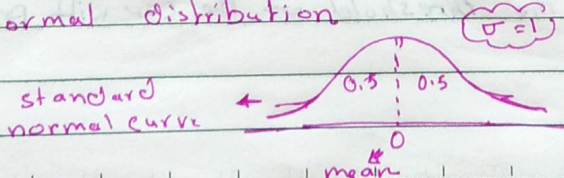 ormal distribution
σ = 1
standard
normal curve
0.5 0.5
0
mean